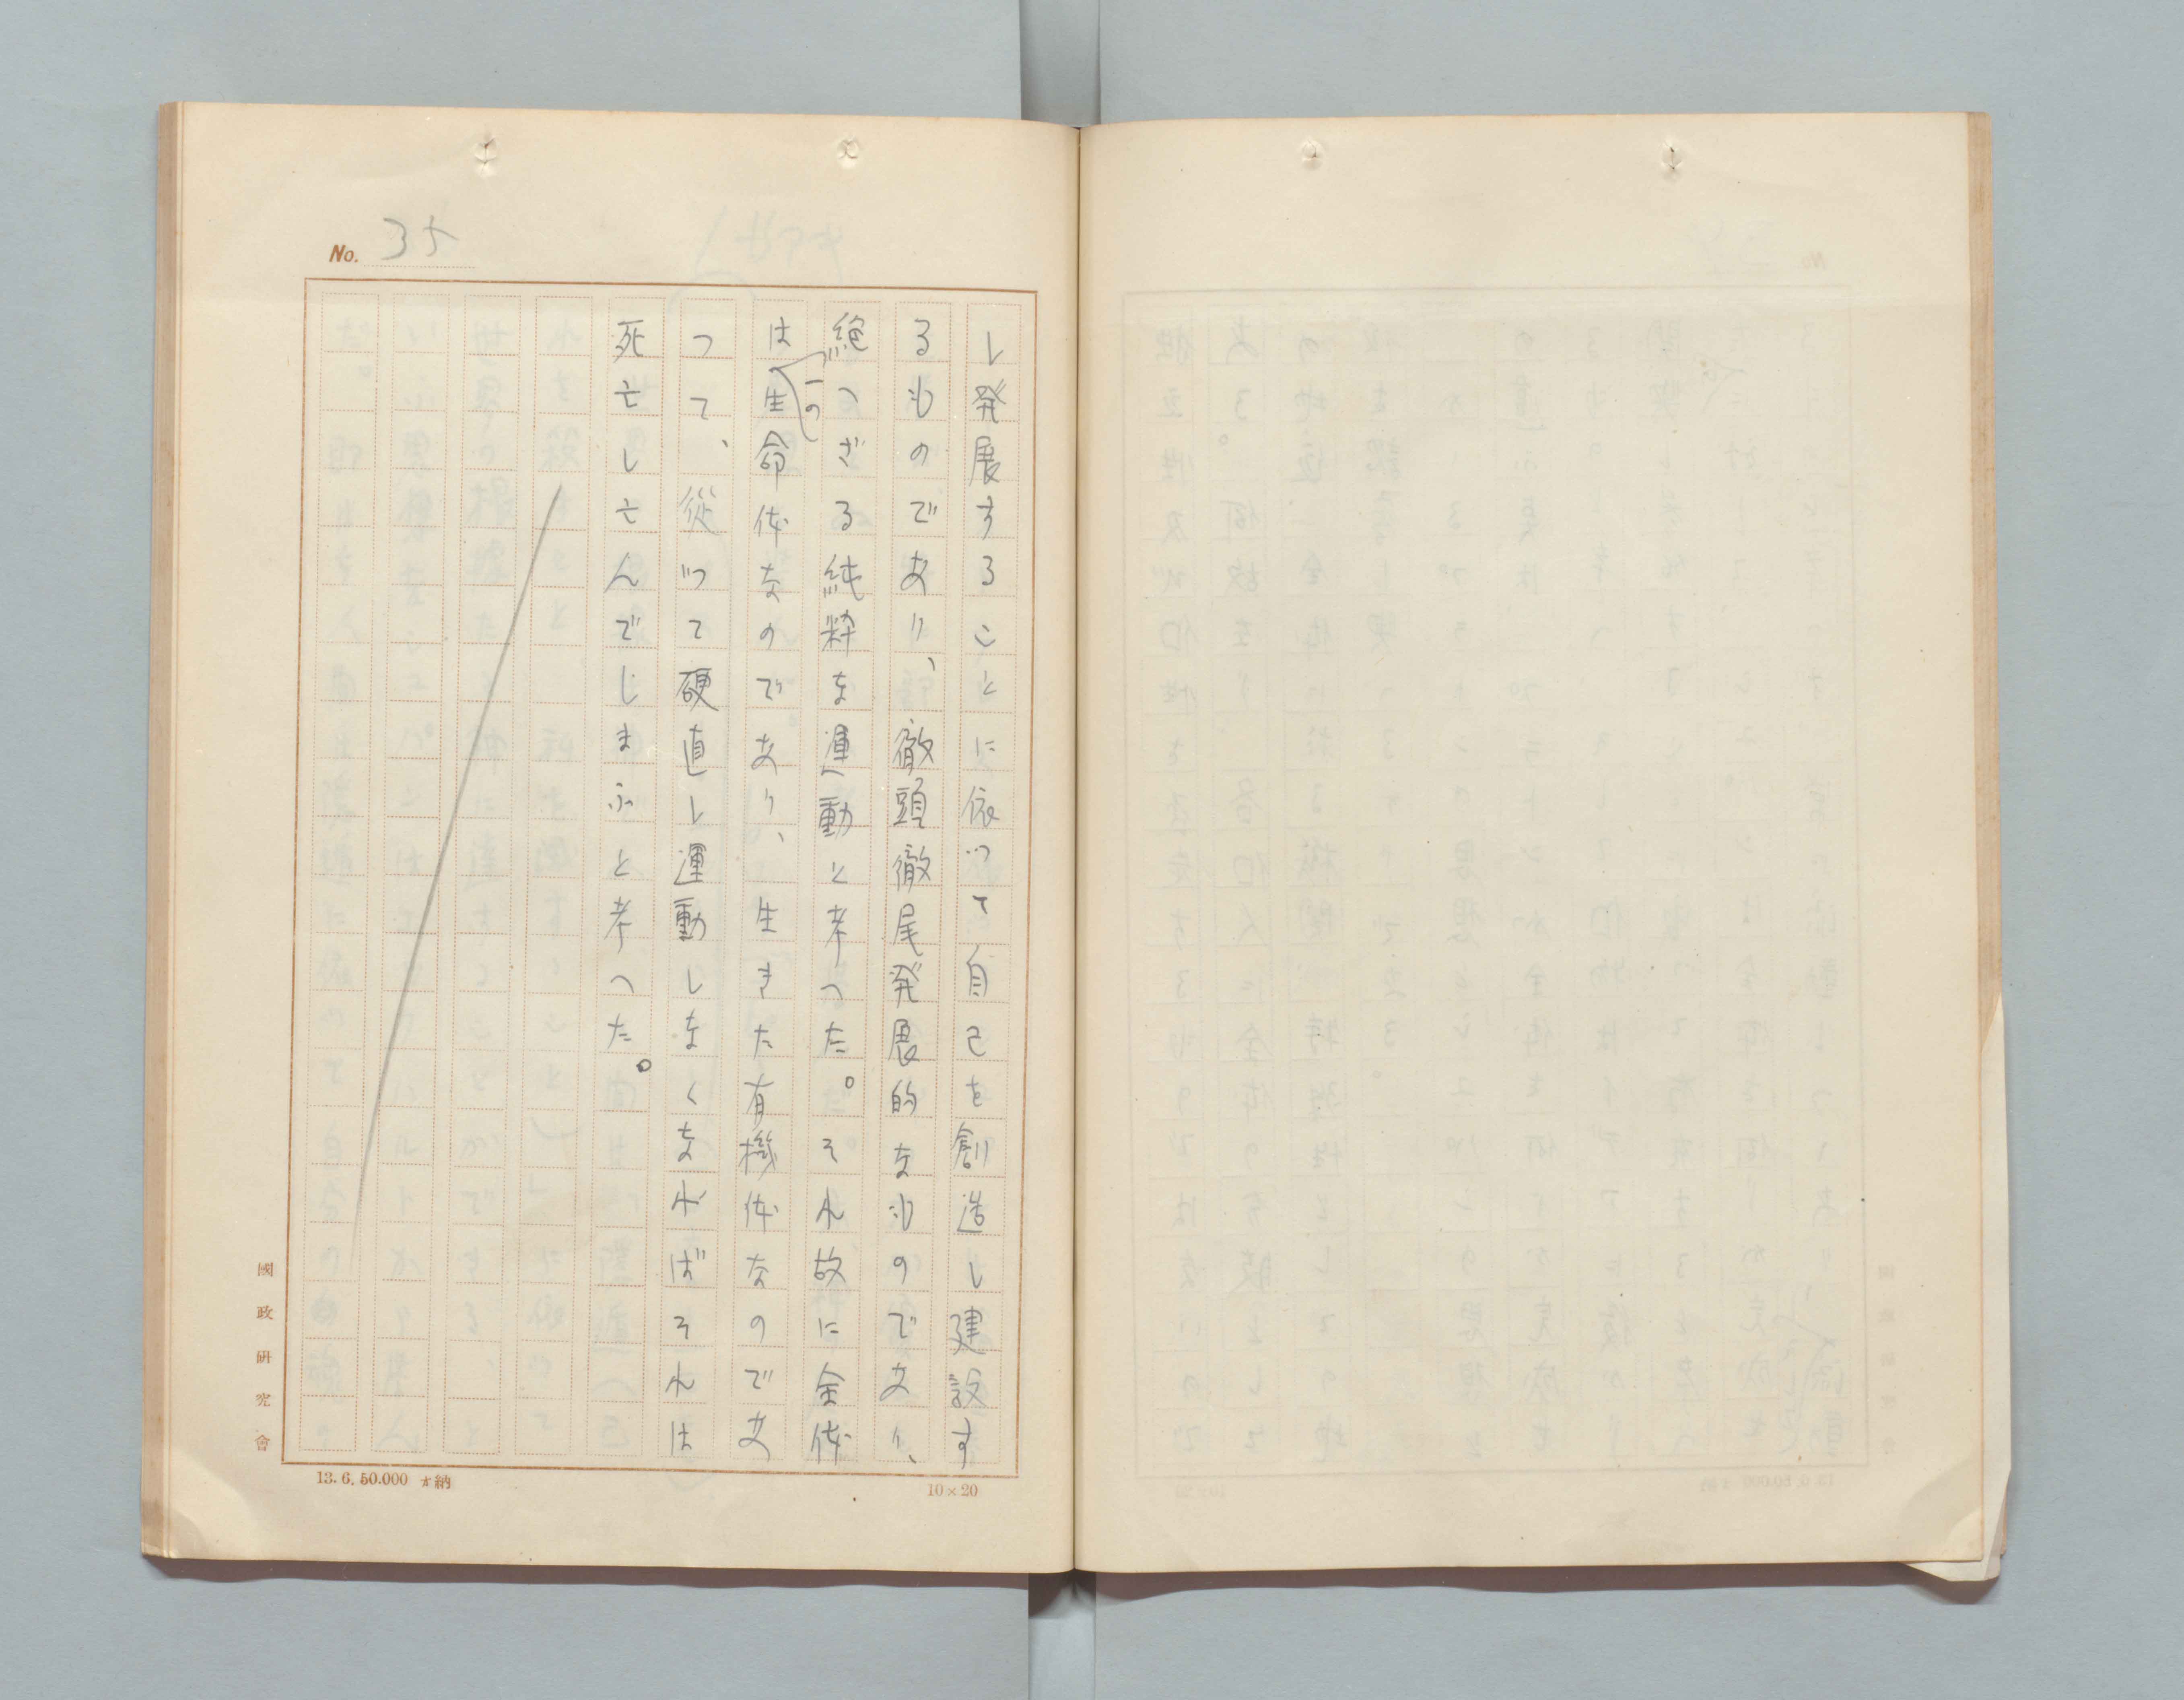 No. 35
し発展することに依つて自己を創造し建設す
るものであり、徹頭徹尾発展的なものであり、
絶へざる純粋な運動と考へた。それ故に全体
は一の生命体なのであり、生きた有機体なのであ
つて、従つて硬直し運動しなくなればそれは
死亡し亡んでしまふと考へた。
國政研究會
13.6.50.000 納
10×20